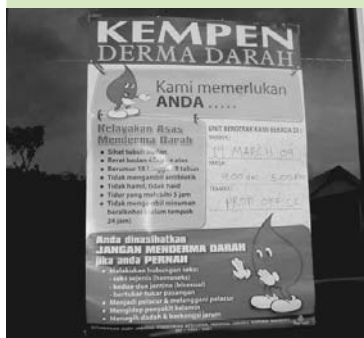 KEMPEN
DERMA DARAH
Kami memerlukan
ANDA .....
Kelayakan Asas
Menderma Darah
Sihat tubuh badan
Berat badan 45kg ke atas
Berumur 18 hingga tahun
Tidak mengambil antibiotik
Tidak hamil, tidak haid
Tidur yang melebihi 5 jam
Tidak mengambil minuman
beralkohol dalam tempoh
24 jam
UNIT BERGERAK KAMI BERADA DI :
MARCH 09
9.00 5.00 PM
TEMPAT:
OFFICE
Anda dinasihatkan
JANGAN MENDERMA DARAH
jika anda PERNAH
Melakukan hubungan seks:
- seks sejenis (homoseks)
- kedua-dua jantina (bisexual)
- bertukar-tukar pasangan
Menjadi pelacur & melanggani pelacur
Mengidap penyakit kelamin
Menagih dadah & berkongsi jarum